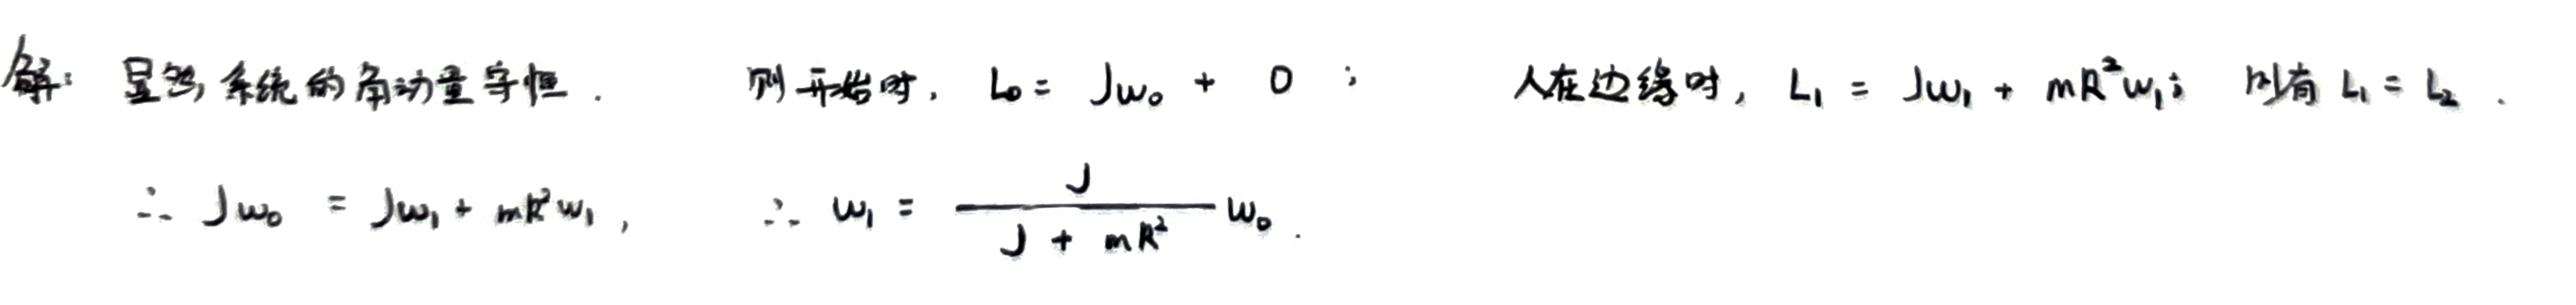 解: 显然, 系统的角动量守恒. 则开始时, L₀ = Jω₀ + 0 ; 人在边缘时, L₁ = Jω₁ + mR²ω₁; 则有 L₁ = L₂ .
∴ Jω₀ = Jω₁ + mR²ω₁ , ∴ ω₁ = J / (J + mR²) ω₀ .